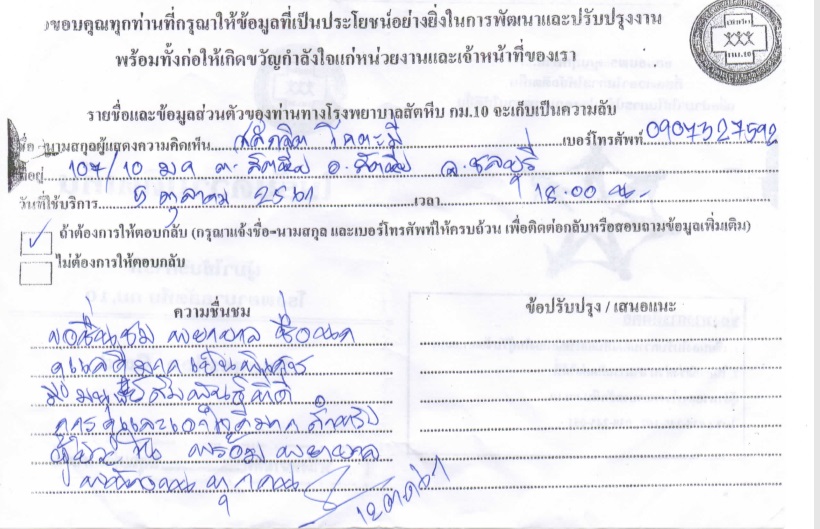 ขอบคุณทุกท่านที่กรุณาให้ข้อมูลที่เป็นประโยชน์อย่างยิ่งในการพัฒนาและปรับปรุงงาน
พร้อมทั้งก่อให้เกิดขวัญกำลังใจแก่หน่วยงานและเจ้าหน้าที่ของเรา
กม.10
รายชื่อและข้อมูลส่วนตัวของท่านทางโรงพยาบาลสัตหีบ กม.10 จะเก็บเป็นความลับ
ชื่อ-นามสกุลผู้แสดงความคิดเห็น เบอร์โทรศัพท์ 0907327592
ที่อยู่ 107/10 ต. สัตหีบ อ. สัตหีบ จ. ชลบุรี
วันที่ใช้บริการ 5 ตุลาคม 2561 เวลา 18.00 น.
ถ้าต้องการให้ตอบกลับ (กรุณาแจ้งชื่อ-นามสกุล และเบอร์โทรศัพท์ให้ครบถ้วน เพื่อติดต่อกลับหรือสอบถามข้อมูลเพิ่มเติม)
ไม่ต้องการให้ตอบกลับ
ความชื่นชม ข้อปรับปรุง / เสนอแนะ
ขอชื่นชม พยาบาล
ดูแลดีมาก
มีมนุษย์สัมพันธ์ที่ดี
การดูแลเอาใจดีมาก สำหรับ
ผู้ป่วย พร้อม พยาบาล
ทุกคน
12 ตค 61